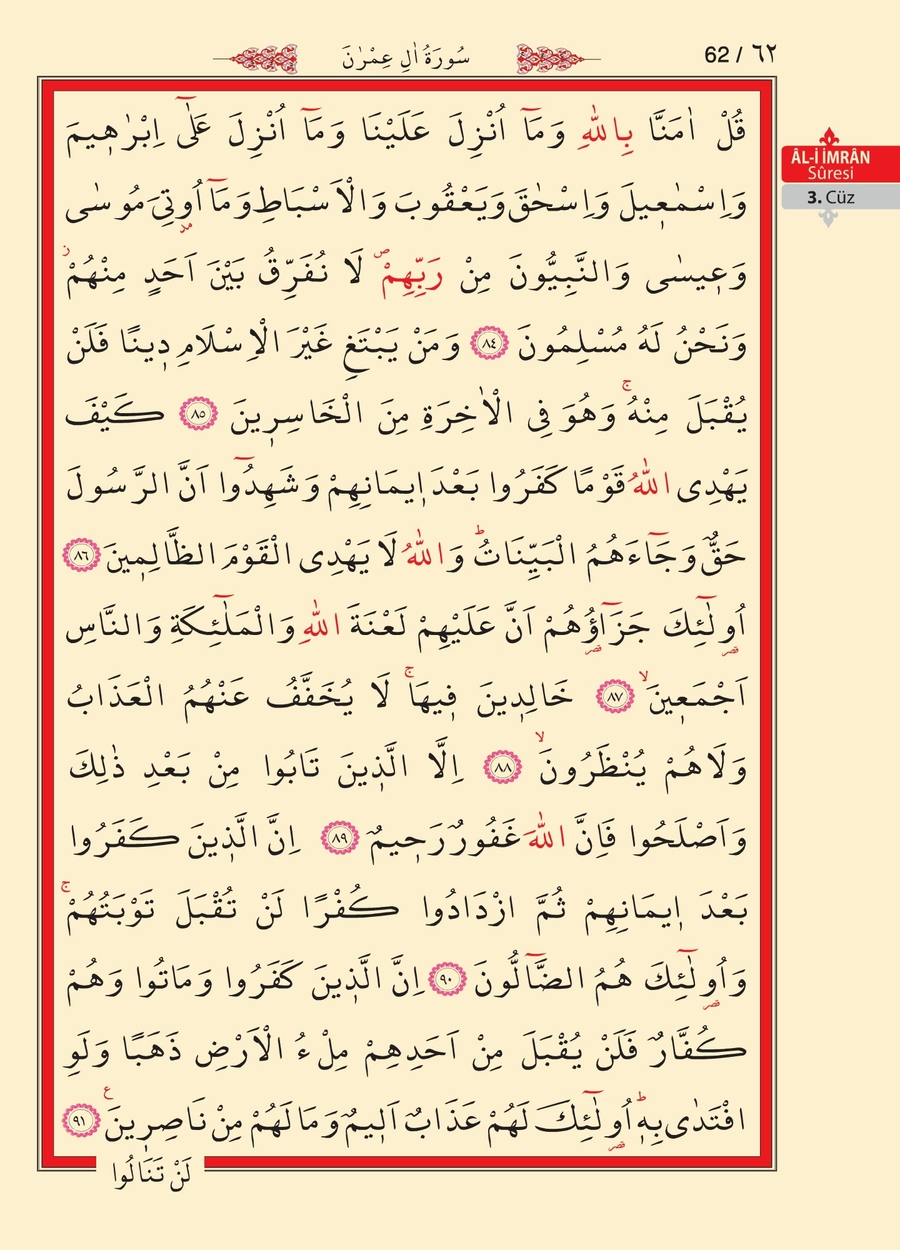 سُورَةُ اٰلِ عِمْرٰنَ
62 / ٦٢
ÂL-İ İMRÂN
Sûresi
3. Cüz
قُلْ اٰمَنَّا بِاللّٰهِ وَمَٓا اُنْزِلَ عَلَيْنَا وَمَٓا اُنْزِلَ عَلٰٓى اِبْرٰه۪يمَ
وَاِسْمٰع۪يلَ وَاِسْحٰقَ وَيَعْقُوبَ وَالْاَسْبَاطِ وَمَٓا اُو۫تِيَ مُوسٰى
وَع۪يسٰى وَالنَّبِيُّونَ مِنْ رَبِّهِمْۖ لَا نُفَرِّقُ بَيْنَ اَحَدٍ مِنْهُمْۘ
وَنَحْنُ لَهُ مُسْلِمُونَ ﴿٨٤﴾ وَمَنْ يَبْتَغِ غَيْرَ الْاِسْلَامِ د۪ينًا فَلَنْ
يُقْبَلَ مِنْهُۚ وَهُوَ فِى الْاٰخِرَةِ مِنَ الْخَاسِر۪ينَ ﴿٨٥﴾ كَيْفَ
يَهْدِى اللّٰهُ قَوْمًا كَفَرُوا بَعْدَ ا۪يمَانِهِمْ وَشَهِدُٓوا اَنَّ الرَّسُولَ
حَقٌّ وَجَٓاءَهُمُ الْبَيِّنَاتُۜ وَاللّٰهُ لَا يَهْدِى الْقَوْمَ الظَّالِم۪ينَ ﴿٨٦﴾
اُو۬لٰٓئِكَ جَزَٓاؤُ۬هُمْ اَنَّ عَلَيْهِمْ لَعْنَةَ اللّٰهِ وَالْمَلٰٓئِكَةِ وَالنَّاسِ
اَجْمَع۪ينَۙ ﴿٨٧﴾ خَالِد۪ينَ ف۪يهَاۚ لَا يُخَفَّفُ عَنْهُمُ الْعَذَابُ
وَلَاهُمْ يُنْظَرُونَۙ ﴿٨٨﴾ اِلَّا الَّذ۪ينَ تَابُوا مِنْ بَعْدِ ذٰلِكَ
وَاَصْلَحُوا فَاِنَّ اللّٰهَ غَفُورٌ رَح۪يمٌ ﴿٨٩﴾ اِنَّ الَّذ۪ينَ كَفَرُوا
بَعْدَ ا۪يمَانِهِمْ ثُمَّ ازْدَادُوا كُفْرًا لَنْ تُقْبَلَ تَوْبَتُهُمْۚ
وَاُو۬لٰٓئِكَ هُمُ الضَّٓالُّونَ ﴿٩٠﴾ اِنَّ الَّذ۪ينَ كَفَرُوا وَمَاتُوا وَهُمْ
كُفَّارٌ فَلَنْ يُقْبَلَ مِنْ اَحَدِهِمْ مِلْءُ الْاَرْضِ ذَهَبًا وَلَوِ
افْتَدٰى بِه۪ۜ اُو۬لٰٓئِكَ لَهُمْ عَذَابٌ اَل۪يمٌ وَمَا لَهُمْ مِنْ نَاصِر۪ينَ۟ ﴿٩١﴾
لَنْ تَنَالُوا